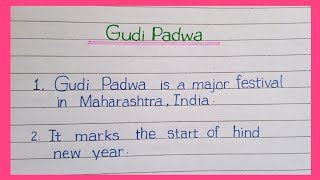 Gudi Padwa
1. Gudi Padwa is a major festival
in Maharashtra, India.
2. It marks the start of hind
new year.